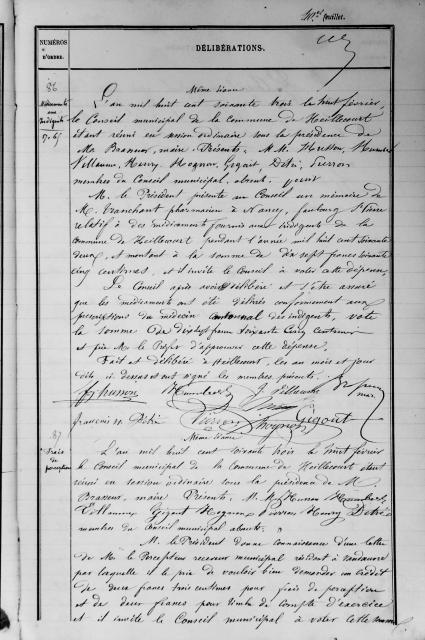 feuillet.
NUMÉROS D'ORDRE.
DÉLIBÉRATIONS.
86
Médicaments aux Indigents
17.65
Même séance
L'an mil huit cent soixante trois le huit février,
le Conseil municipal de la Commune de Heillecourt
étant réuni en session ordinaire sous la présidence de
M. Brasseur, maire. Présents: M.M. Husson, Humbert
Villaume, Henry Hognon, Gigout, Détré, Pierron
membres du Conseil municipal, absent,
M. le Président présente au Conseil un mémoire de
M. Tranchant pharmacien à Nancy, faubourg St Pierre
relatif à des médicaments fournis aux indigents de la
Commune de Heillecourt pendant l'année mil huit cent soixante
deux, et montant à la somme de dix sept francs soixante
cinq centimes, et il invite le Conseil à voter cette dépense.
Le Conseil après avoir délibéré et s'être assuré
que les médicaments ont été délivrés conformément aux
prescriptions du médecin cantonal des indigents, vote
la somme de dix sept francs soixante cinq centimes
et prie Mr le Préfet d'approuver cette dépense.
Fait et délibéré à Heillecourt, les an mois et jour
dits et ont signé les membres présents.
Husson Humbert J. Villaume
Détré Pierron Hognon Gigout
87
Frais de perception
Même séance
L'an mil huit cent soixante trois le huit février
le Conseil municipal de la Commune de Heillecourt étant
réuni en session ordinaire sous la présidence de M.
Brasseur, maire. Présents, M.M. Husson Humbert
Villaume Gigout Hognon Pierron Henry Détré
membres du Conseil municipal absents.
M. le Président donne connaissance d'une lettre
de Mr le Percepteur receveur municipal résident à
par laquelle il le prie de vouloir bien demander un crédit
de deux francs trois centimes pour frais de perception
et de deux francs pour timbre de compte d'exercice
et il invite le Conseil municipal à voter cette somme